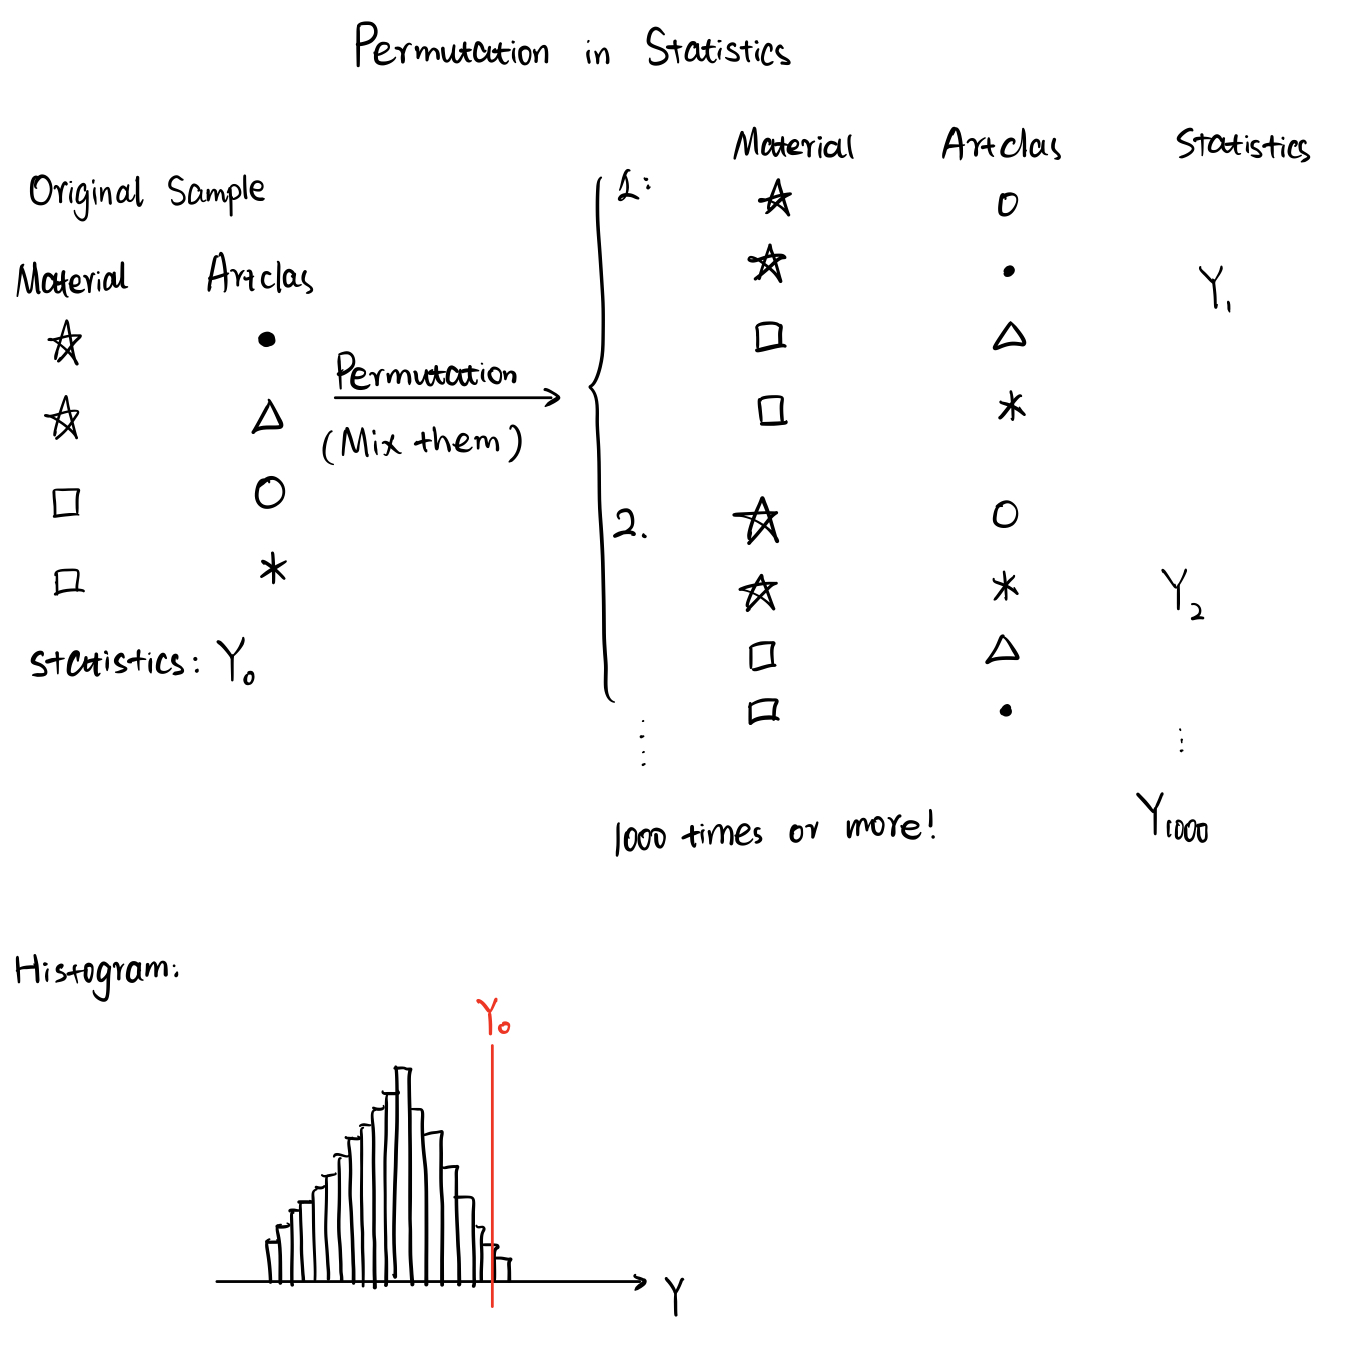 Permutation in Statistics
Original Sample
Material Artclas
Statistics: Y₀
Permutation
(Mix them)
Material Artclas Statistics
1:
Y₁
2.
Y₂
1000 times or more!
Y₁₀₀₀
Histogram:
Y₀
Y